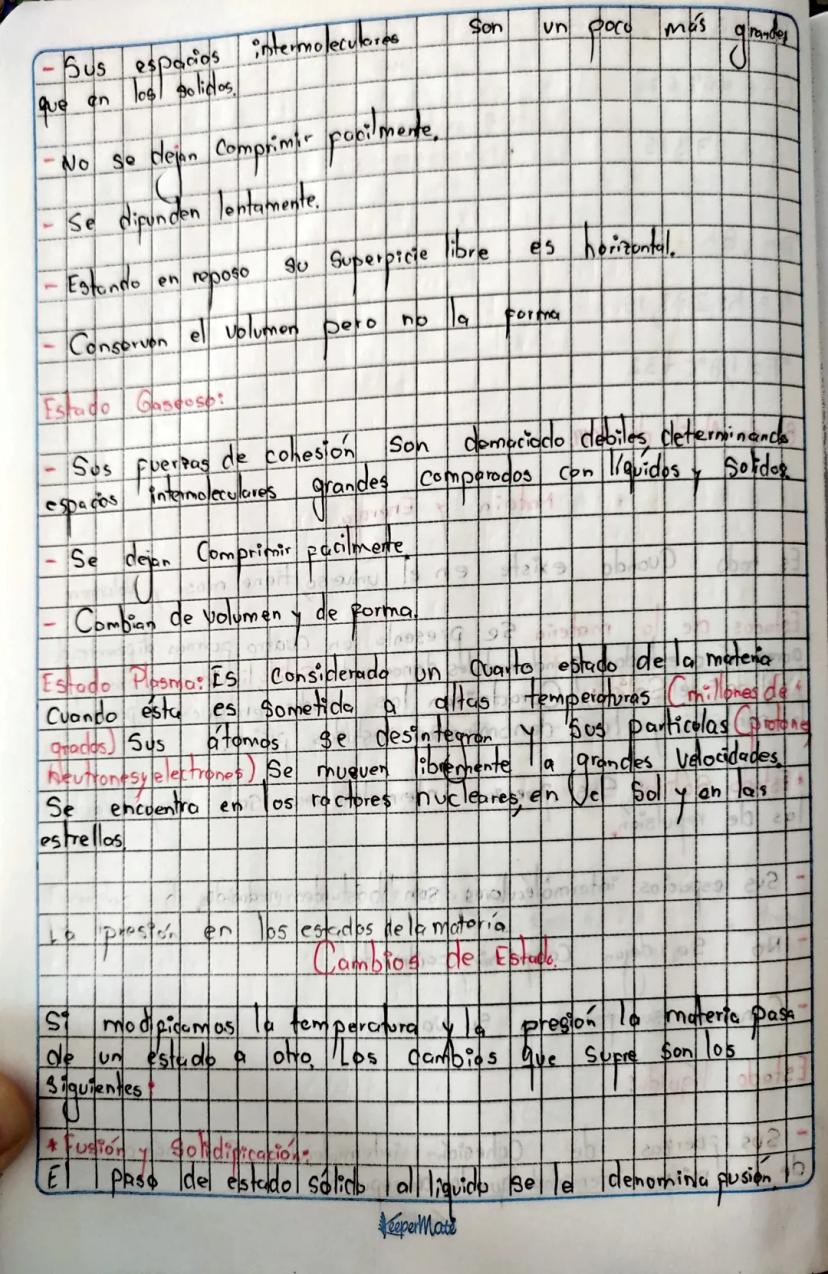 - Sus espacios intermoleculares son un poco más grandes
que en los solidos.
- No se dejan comprimir facilmente.
- Se difunden lentamente.
- Estando en reposo su superficie libre es horizontal.
- Conservan el volumen pero no la forma
Estado Gaseoso:
- Sus fuerzas de cohesión son demaciado débiles, determinando
espacios intermoleculares grandes comparados con líquidos y solidos
- Se dejan Comprimir facilmente.
- Cambian de volumen y de forma.
Estado Plasma: ES considerado un cuarto estado de la materia
Cuando ésta es sometida a altas temperaturas (millones de
grados) Sus átomos se desintegran y sus particulas (protones
Neutrones y electrones) Se mueven libremente a grandes velocidades.
Se encuentra en los ractores nucleares, en el Sol y en las
estrellas.
La presión en los estados de la materia
Cambios de Estado.
Si modificamos la temperatura y la presión la materia pasa
de un estado a otro. Los cambios que sufre son los
siguientes:
* Fusión y Solidificación:
El paso del estado sólido al liquido se le denomina fusión.
KeeperMate